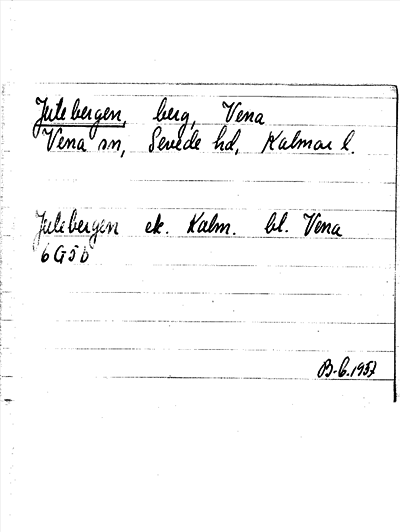 Jutebergen, berg, Vena
Vena sn, Sevede hd, Kalmar l.
Jutebergen ek. Kalm. bl. Vena
6G5b
B-G. 1957